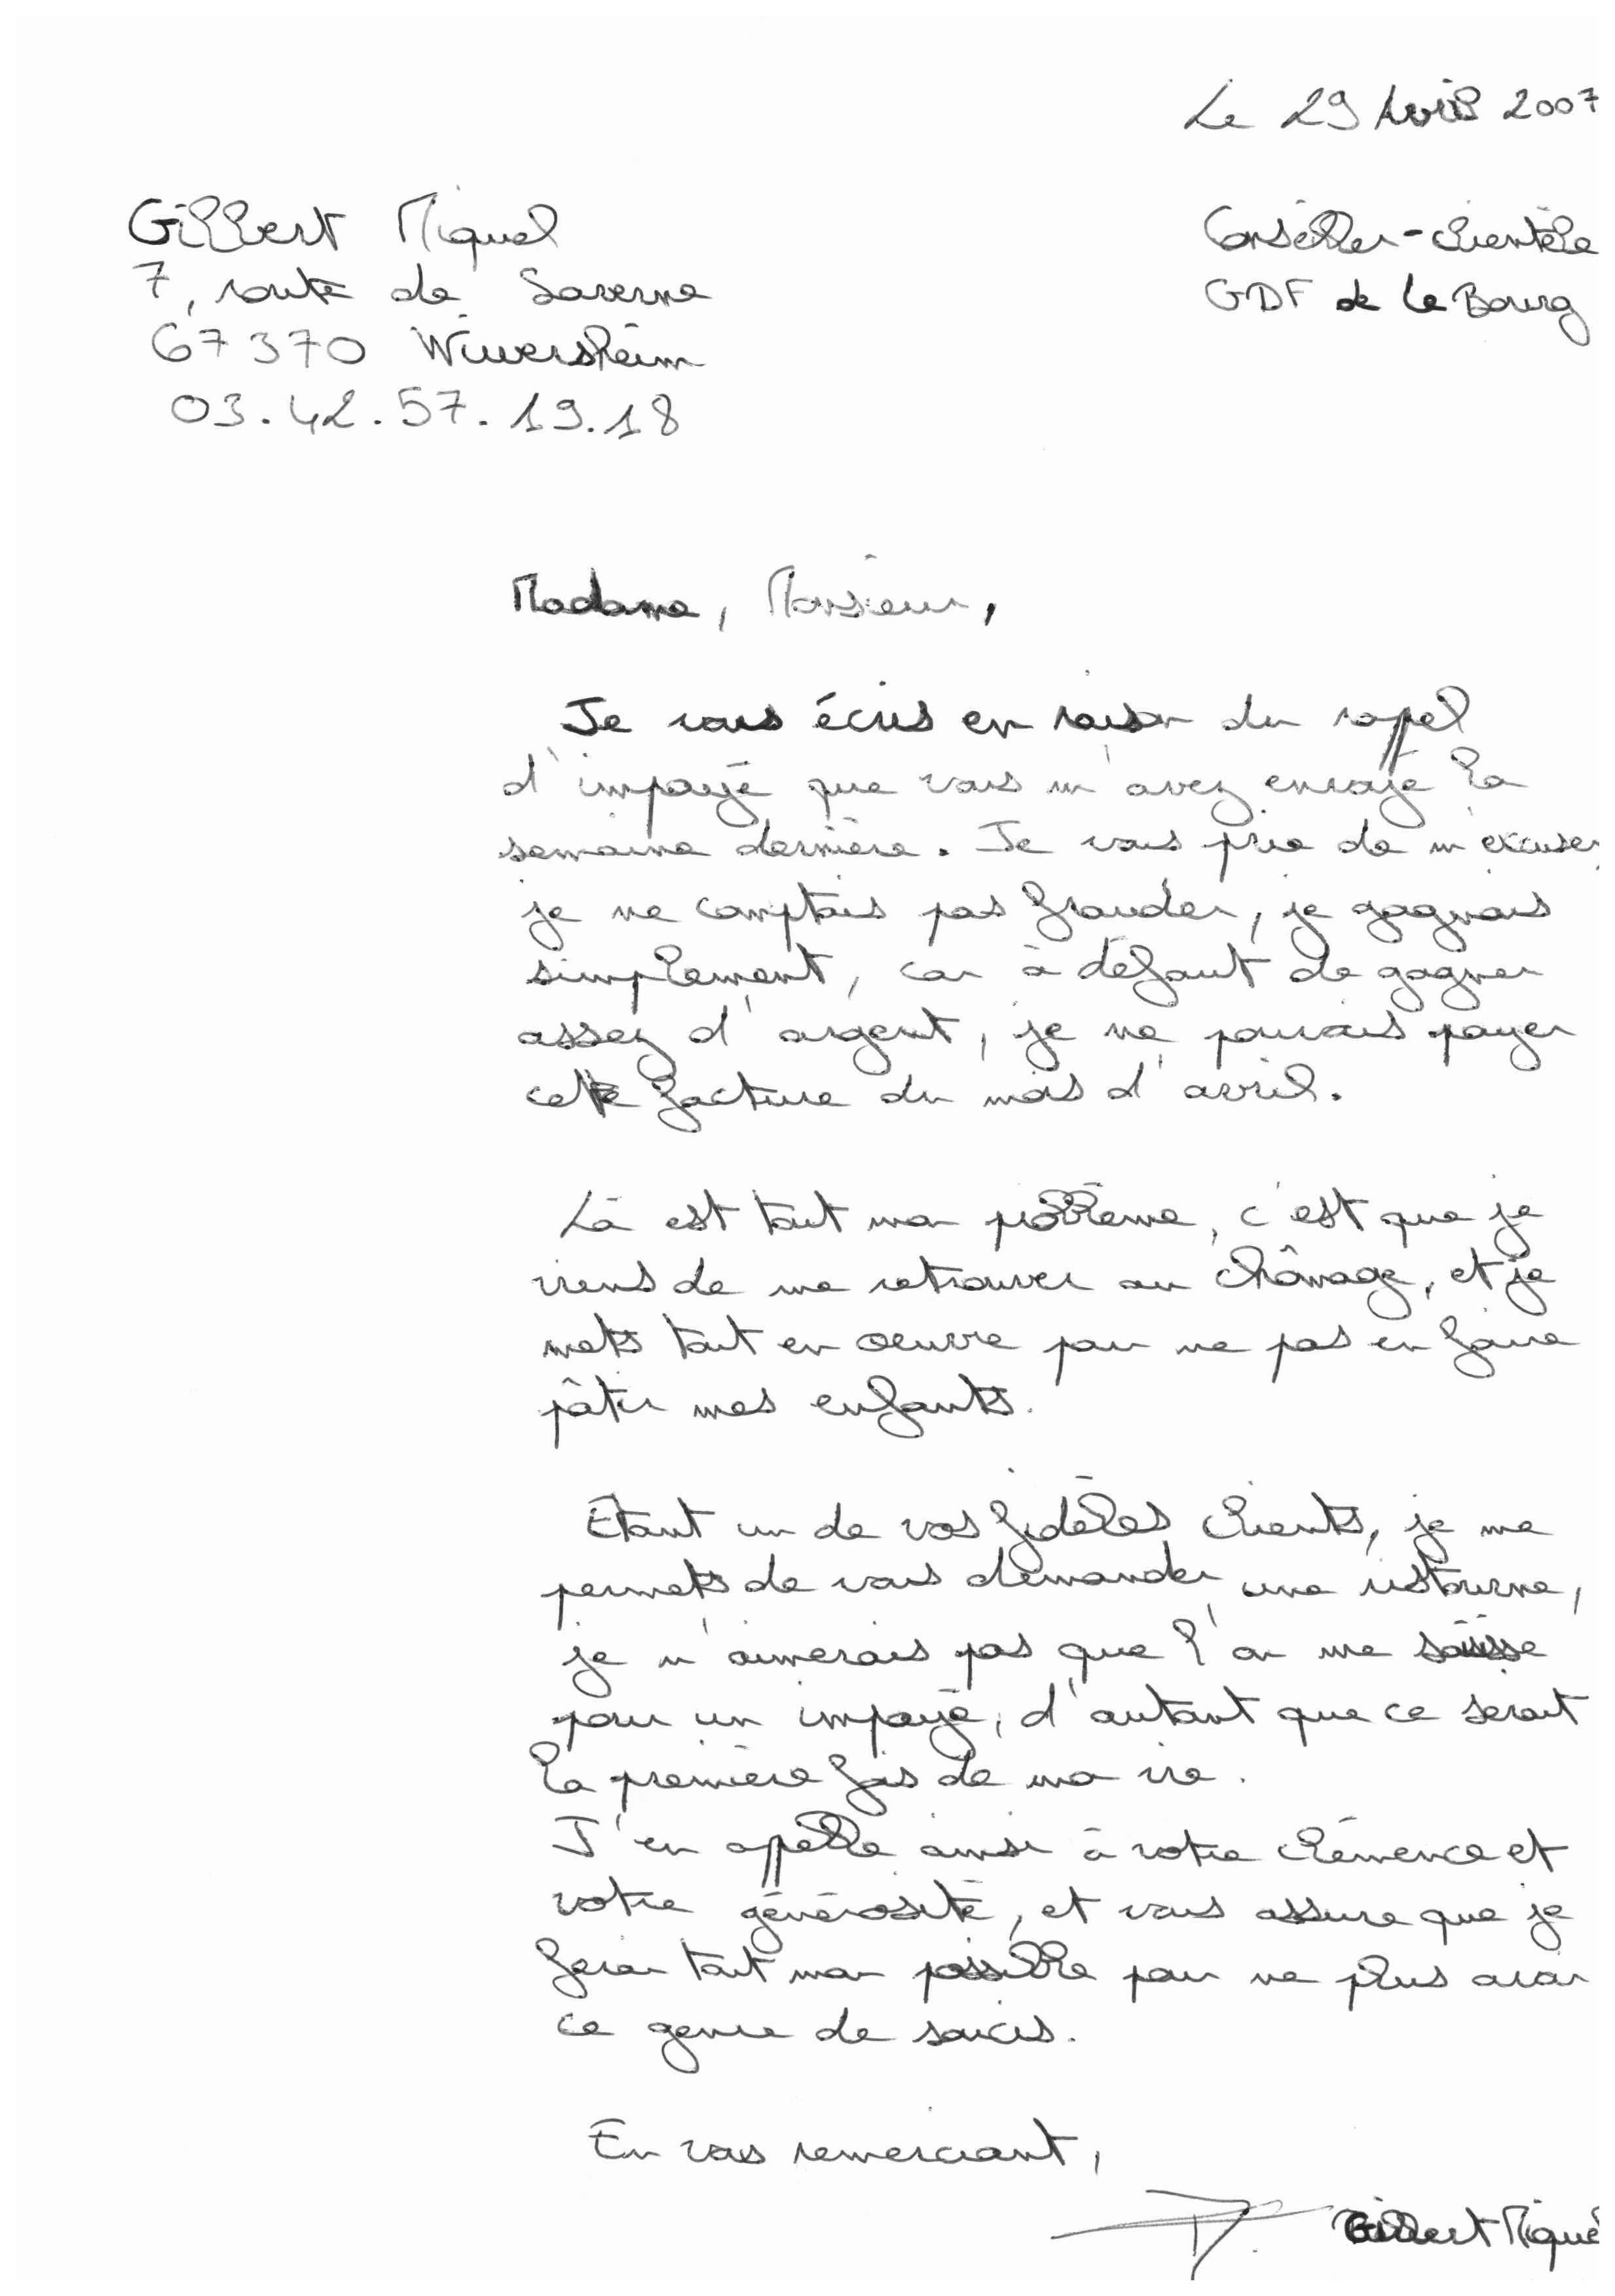 Le 29 Avril 2007
Gilbert Miquel
7, route de Saverne
67370 Wiwersheim
03.42.57.19.18
Conseiller-clientèle
GDF de Le Bourg
Madame, Monsieur,
Je vous écris en raison du rappel
d'impayé que vous m'avez envoyé la
semaine dernière. Je vous prie de m'excuser,
je ne comptais pas frauder, je gagnais
simplement, car à défaut de gagner
assez d'argent, je ne pouvais payer
cette facture du mois d'avril.
Là est tout mon problème, c'est que je
viens de me retrouver au chômage, et je
mets tout en oeuvre pour ne pas en faire
pâtir mes enfants.
Etant un de vos fidèles clients, je me
permets de vous demander une ristourne,
je n'aimerais pas que l'on me saisisse
pour un impayé, d'autant que ce serait
la première fois de ma vie.
J'en appelle ainsi à votre clémence et
votre générosité, et vous assure que je
ferai tout mon possible pour ne plus avoir
ce genre de soucis.
En vous remerciant,
Gilbert Miquel